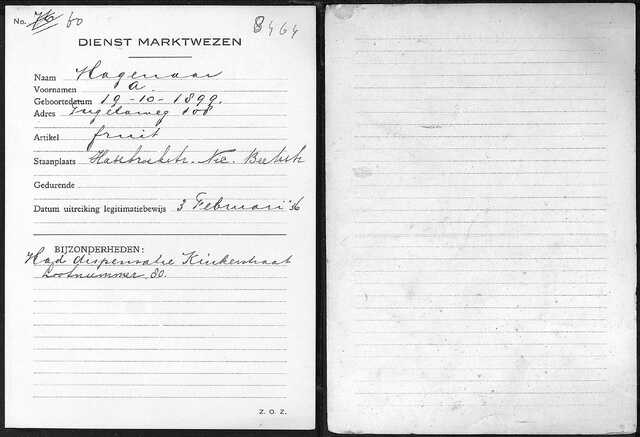 No. 76 60
8464
DIENST MARKTWEZEN
Naam Hagenaar
Voornamen A.
Geboortedatum 19-10-1899.
Adres 108
Artikel fruit
Staanplaats Nic. Beetsstr
Gedurende
Datum uitreiking legitimatiebewijs 3 Februari '36
BIJZONDERHEDEN:
Had dispensatie Kinkerstraat
Lootnummer 80.
Z. O. Z.